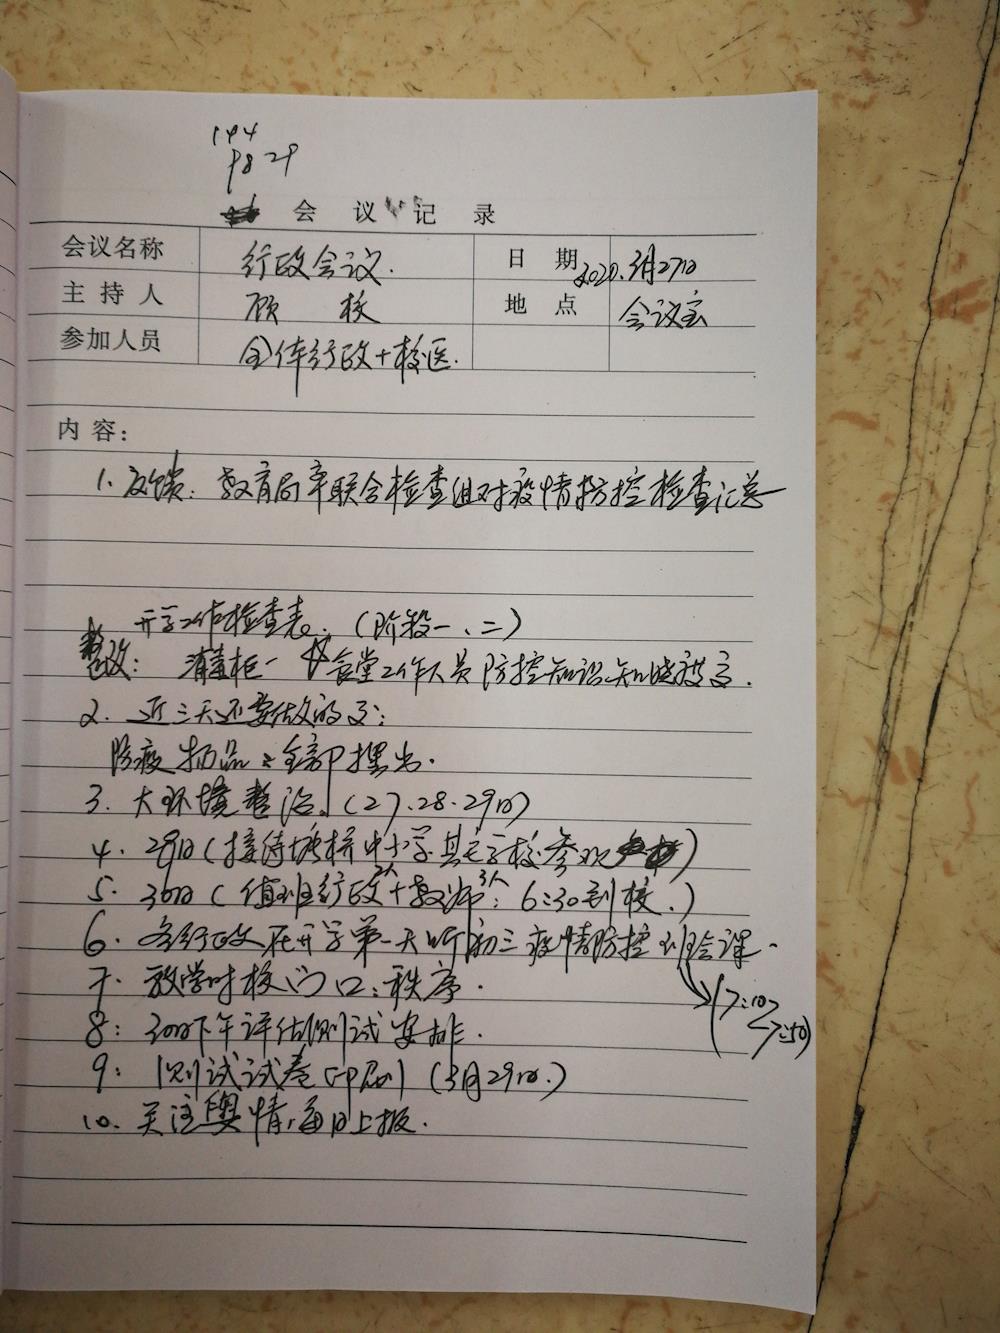 144
9829
会议记录
会议名称 行政会议. 日期 2020.3月27日
主持人 顾校 地点 会议室
参加人员 全体行政+校医.
内容:
1.反馈:教育局牵联合检查组对疫情防控检查汇总
开学工作检查表.(阶段一、二)
整改: 消毒柜一 食堂工作人员防控知识知晓
2.近三天还要做的事:
防疫物品:全部摆出.
3.大环境整治.(27.28.29日)
4.29日(接待塘桥中小学其它学校参观)
5.30日(值班行政2人+教师3人:6:30到校.)
6.各行政在开学第一天听初三疫情防控班会课.
(7:10>7:50)
7.放学时校门口:秩序.
8:30日下午评估测试安排.
9:测试试卷印刷(3月29日.)
10.关注舆情,每日上报.